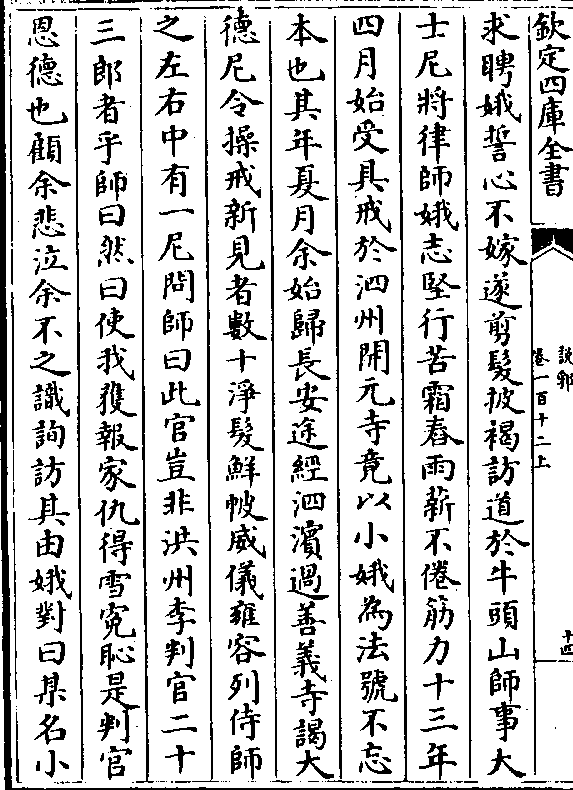 欽定四庫全書
說郛
卷一百十二上
十四
求聘娥誓心不嫁遂剪髮披褐訪道於牛頭山師事大
士尼將律師娥志堅行苦霜舂雨薪不倦筋力十三年
四月始受具戒於泗州開元寺竟以小娥為法號不忘
本也其年夏月余始歸長安途經泗濱過善義寺謁大
德尼令操戒新見者數十淨髮鮮帔威儀雍容列侍師
之左右中有一尼問師曰此官豈非洪州李判官二十
三郎者乎師曰然曰使我獲報家仇得雪冤恥是判官
恩德也顧余悲泣余不之識詢訪其由娥對曰某名小